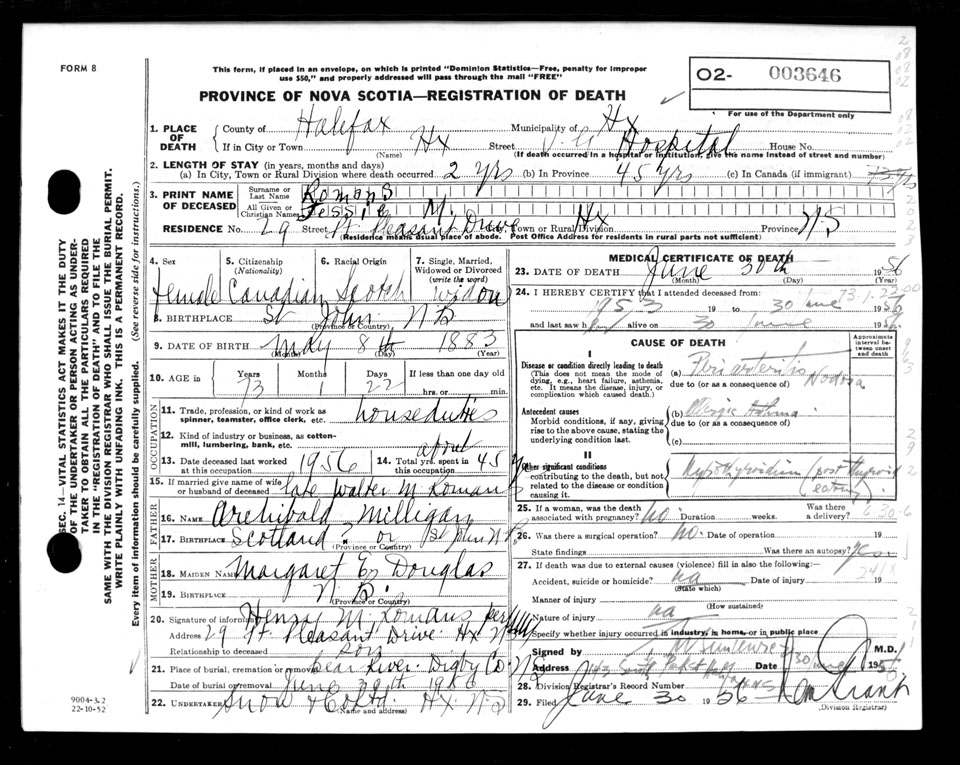 FORM 8
This form, if placed in an envelope, on which is printed "Dominion Statistics—Free, penalty for improper
use $50," and properly addressed will pass through the mail "FREE"
02- 003646
For use of the Department only
PROVINCE OF NOVA SCOTIA—REGISTRATION OF DEATH
1. PLACE OF DEATH { County of Halifax Municipality of Hx
If in City or Town Hx Street V.G. Hospital House No.
(Name) (If death occurred in a hospital or institution, give the name instead of street and number)
2. LENGTH OF STAY (in years, months and days)
(a) In City, Town or Rural Division where death occurred 2 yrs (b) In Province 45 yrs (c) In Canada (if immigrant) 73 yrs
3. PRINT NAME OF DECEASED { Surname or Last Name Romans
All Given or Christian Names Jessie M.
RESIDENCE No. 29 Street Pt. Pleasant Drive City, Town or Rural Division Hx Province NS
(Residence means usual place of abode. Post Office Address for residents in rural parts not sufficient)
4. Sex 5. Citizenship (Nationality) 6. Racial Origin 7. Single, Married, Widowed or Divorced (write the word)
female Canadian Scotch widow
8. BIRTHPLACE St John, NB
(Province or Country)
9. DATE OF BIRTH May 8th 1883
(Month) (Day) (Year)
10. AGE in Years Months Days If less than one day old
73 22 hrs. or min.
OCCUPATION
11. Trade, profession, or kind of work as spinner, teamster, office clerk, etc. houseduties
12. Kind of industry or business, as cotton-mill, lumbering, bank, etc.
13. Date deceased last worked at this occupation 1956 14. Total yrs. spent in this occupation about 45 yrs
15. If married give name of wife or husband of deceased late Walter M Romans
FATHER
16. NAME Archibald Milligan
17. BIRTHPLACE Scotland? or St John N.B.
(Province or Country)
MOTHER
18. MAIDEN NAME Margaret E. Douglas
19. BIRTHPLACE N.B.
(Province or Country)
20. Signature of informant Henry M. Romans per
Address 29 Pt. Pleasant Drive. Hx NS
Relationship to deceased son
21. Place of burial, cremation or removal Bear River. Digby Co. NS
Date of burial or removal June 30th 1956
22. UNDERTAKER Snow & Co Ltd. Hx. N.S.
(Name and address)
MEDICAL CERTIFICATE OF DEATH
23. DATE OF DEATH June 30th 1956
(Month) (Day)
24. I HEREBY CERTIFY that I attended deceased from:
1953 19 to 30 June 1956
and last saw h alive on 30 June 1956
CAUSE OF DEATH
Approximate interval between onset and death
I
Disease or condition directly leading to death
(This does not mean the mode of dying, e.g., heart failure, asthenia, etc. It means the disease, injury, or complication which caused death.)
(a) Peri arteritis Nodosa
due to (or as a consequence of)
Antecedent causes
Morbid conditions, if any, giving rise to the above cause, stating the underlying condition last.
(b) Allergic Asthma
due to (or as a consequence of)
(c)
II
Other significant conditions contributing to the death, but not related to the disease or condition causing it.
Hypothyroidism (post thyroid
25. If a woman, was the death associated with pregnancy? no. Duration weeks. Was there a delivery?
26. Was there a surgical operation? no. Date of operation 19
State findings Was there an autopsy?
27. If death was due to external causes (violence) fill in also the following:—
Accident, suicide or homicide? na Date of injury 19
(State which)
Manner of injury
(How sustained)
Nature of injury na
Specify whether injury occurred in industry, in home, or in public place
Signed by M.D.
Address Date 30 June 1956
28. Division Registrar's Record Number
29. Filed June 30 1956
(Division Registrar)
SEC. 14—VITAL STATISTICS ACT MAKES IT THE DUTY
OF THE UNDERTAKER OR PERSON ACTING AS UNDER-
TAKER TO OBTAIN ALL THE PARTICULARS REQUIRED
IN THE "REGISTRATION OF DEATH" AND TO FILE THE
SAME WITH THE DIVISION REGISTRAR WHO SHALL ISSUE THE BURIAL PERMIT.
WRITE PLAINLY WITH UNFADING INK. THIS IS A PERMANENT RECORD.
Every item of information should be carefully supplied. (See reverse side for instructions.)
9004-3.2
22-10-52